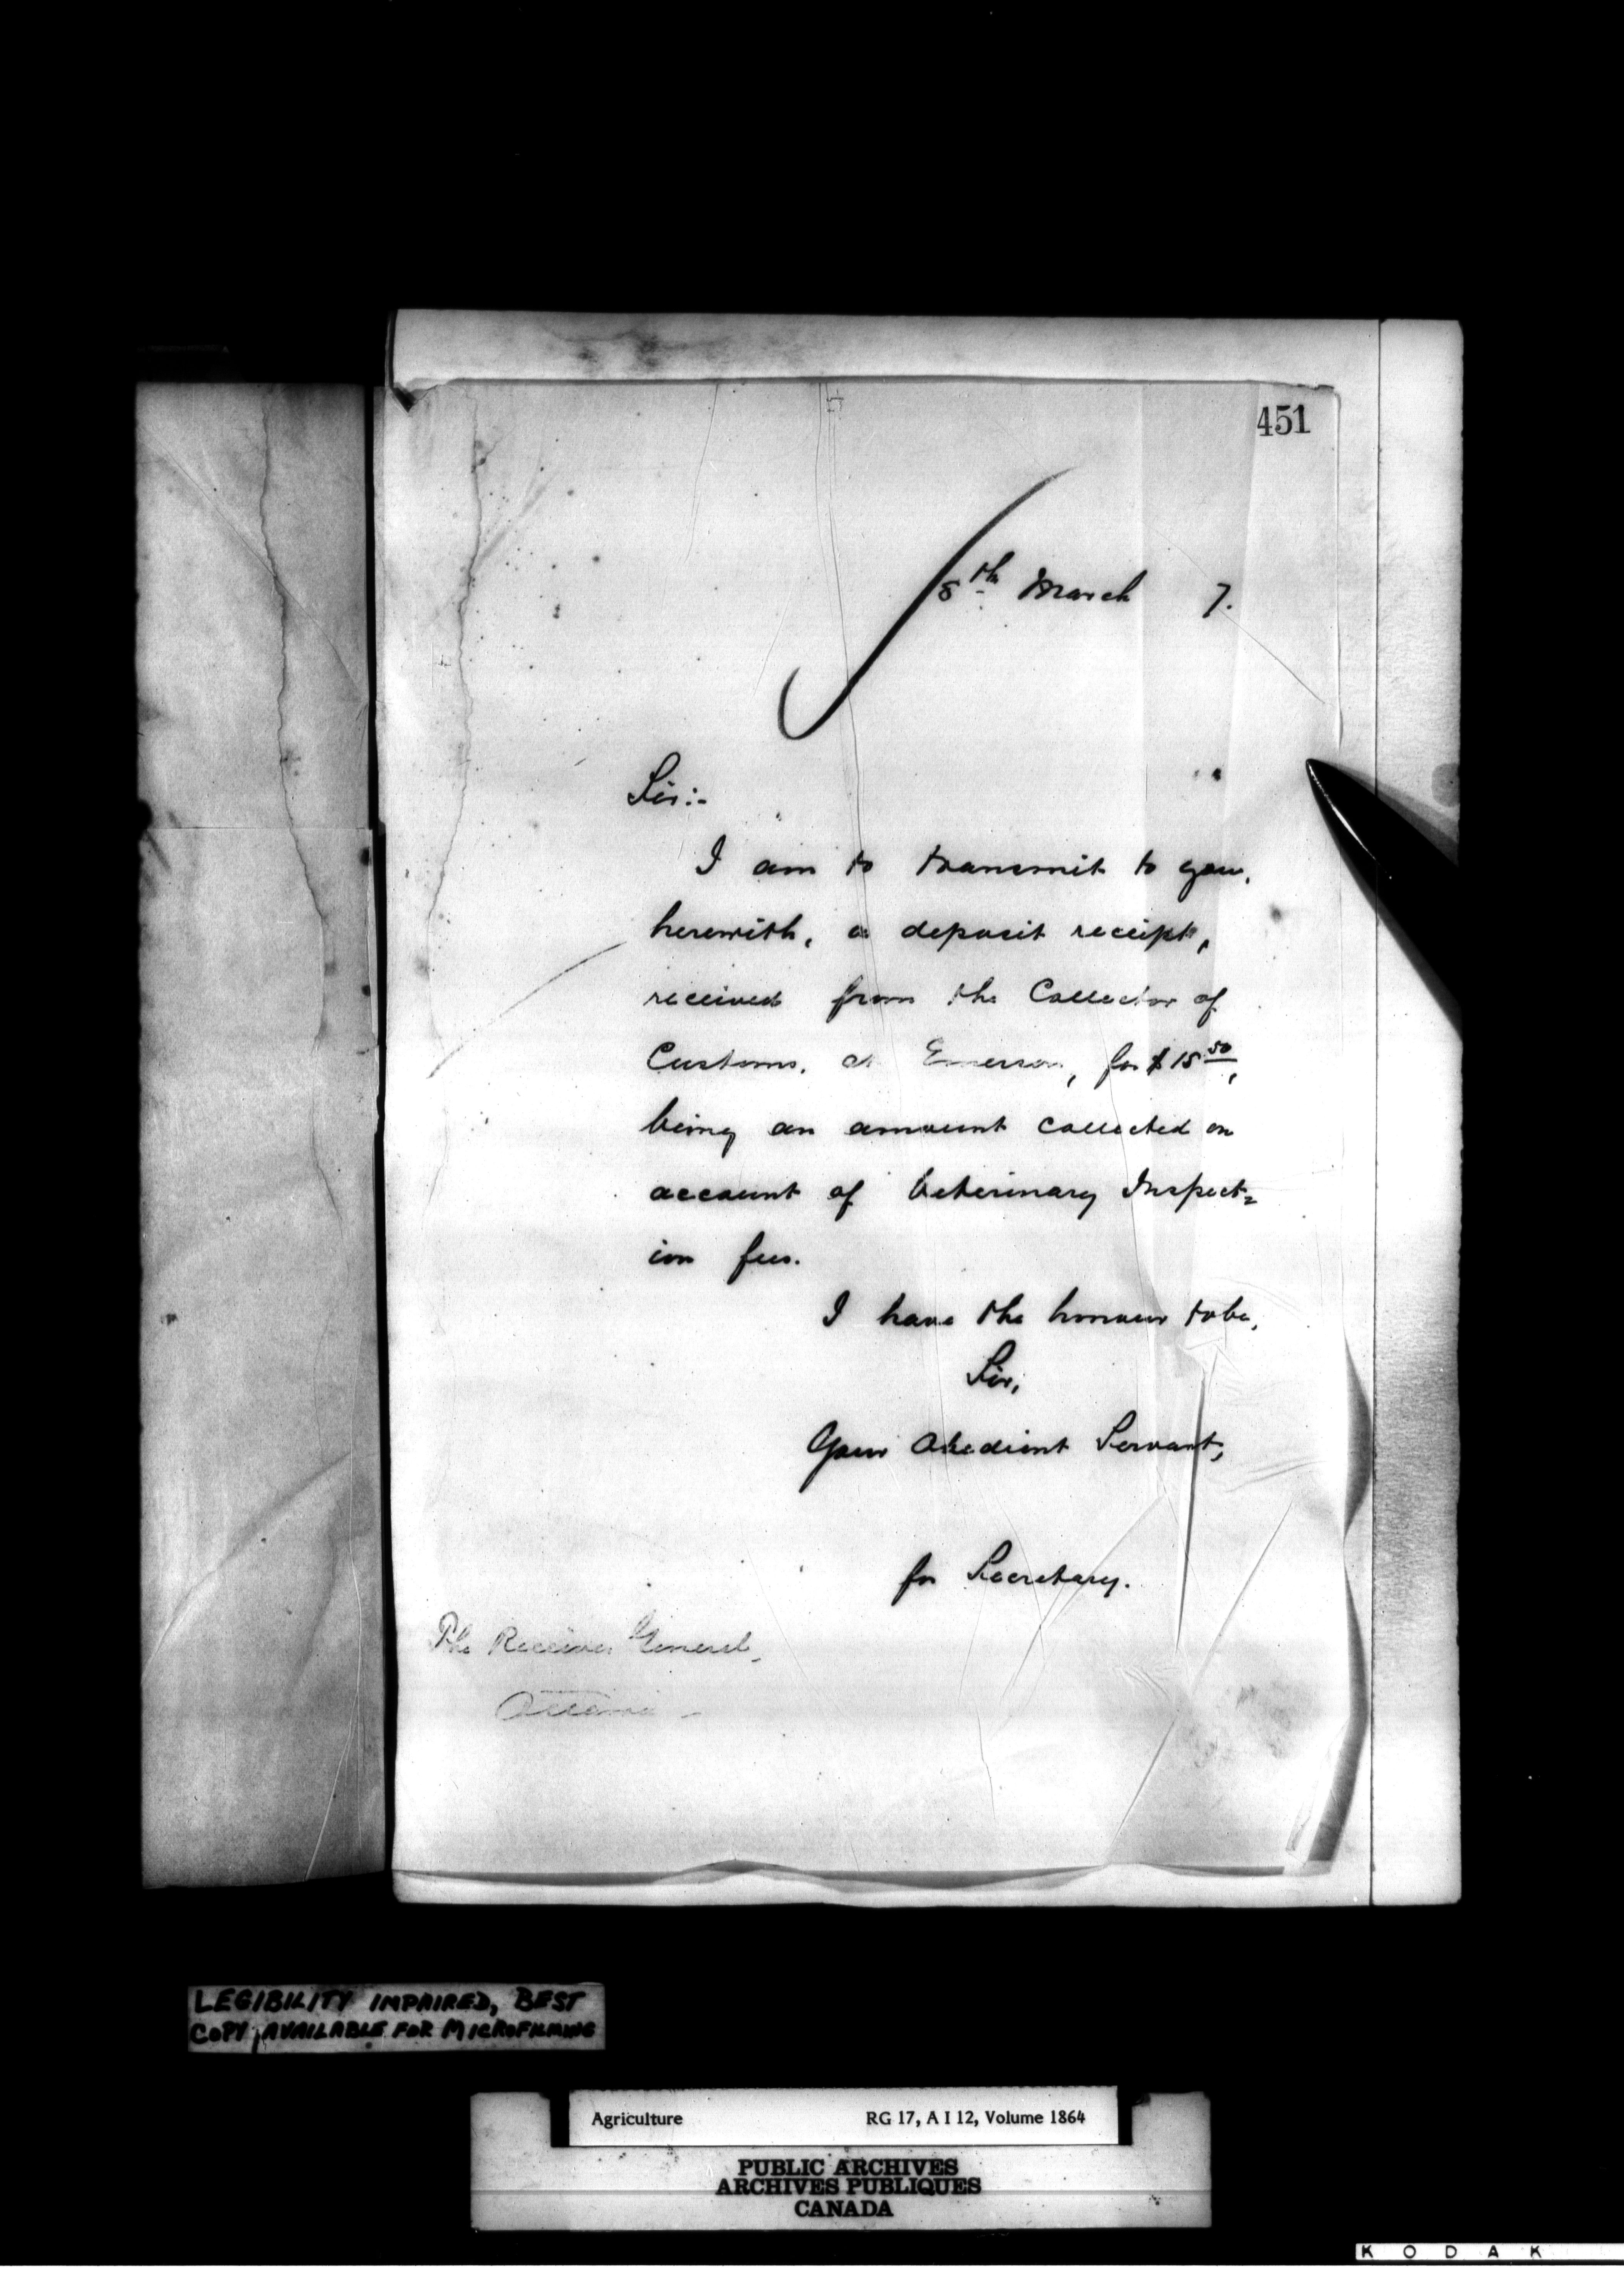 451
8th March 7.
Sir:-
I am to transmit to you,
herewith, a deposit receipt,
received from the Collector of
Customs, at Emerson, for $15 50,
being an amount collected on
account of Veterinary Inspect=
ion fees.
I have the honour to be,
Sir,
Your Obedient Servant,
for Secretary.
The Receiver General,
Ottawa -
LEGIBILITY IMPAIRED, BEST
COPY AVAILABLE FOR MICROFILMING
Agriculture RG 17, A I 12, Volume 1864
PUBLIC ARCHIVES
ARCHIVES PUBLIQUES
CANADA
KODAK